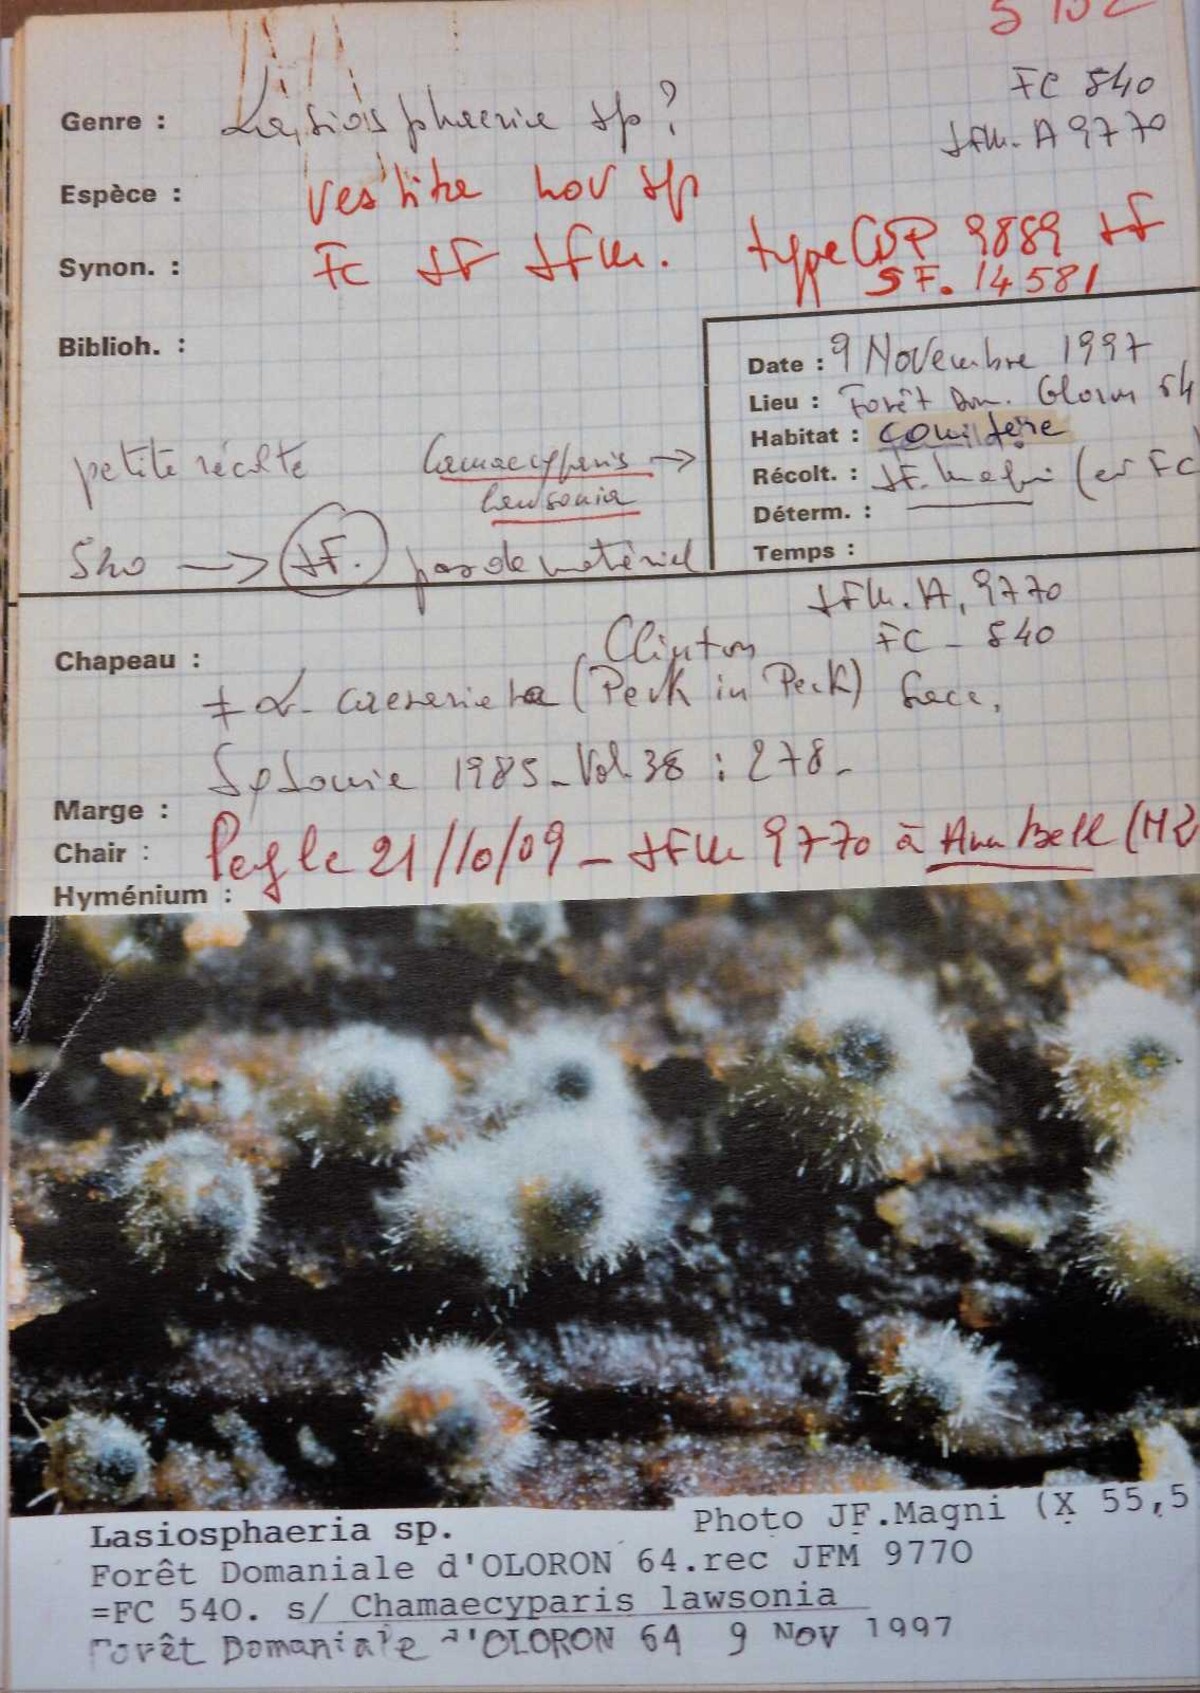 5 132
FC 540
Genre : Lasiosphaeria sp?
JFM. A 9770
Espèce : vestita nov sp
Synon. : FC JF JFM. type CUP 9889 JF
SF. 14581
Biblioh. :
Date : 9 Novembre 1997
Lieu : Forêt Dom. Oloron 64
Habitat : conifère
petite récolte Camaecyparis →
lawsonia
Récolt. : JF. Magni (et FC
Déterm. :
540 → JF. pas de matériel
Temps :
JFM. A. 9770
Clinton FC - 540
Chapeau :
≠ L. caesariata (Peck in Peck) Sacc.
Sydowia 1985 - Vol. 38 : 278 -
Marge :
Chair : 21/10/09 - JFM 9770 à Ann Bell (NZ
Hyménium :
Lasiosphaeria sp. Photo JF.Magni (X 55,5
Forêt Domaniale d'OLORON 64.rec JFM 9770
=FC 540. s/ Chamaecyparis lawsonia
Forêt Domaniale d'OLORON 64 9 Nov 1997